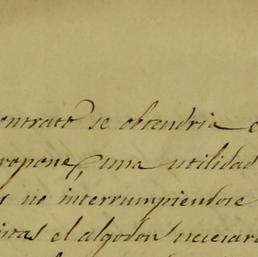 ontrato se obtendria
ropone, una utilidad
s no interrumpiendose
itas el algodon necesar